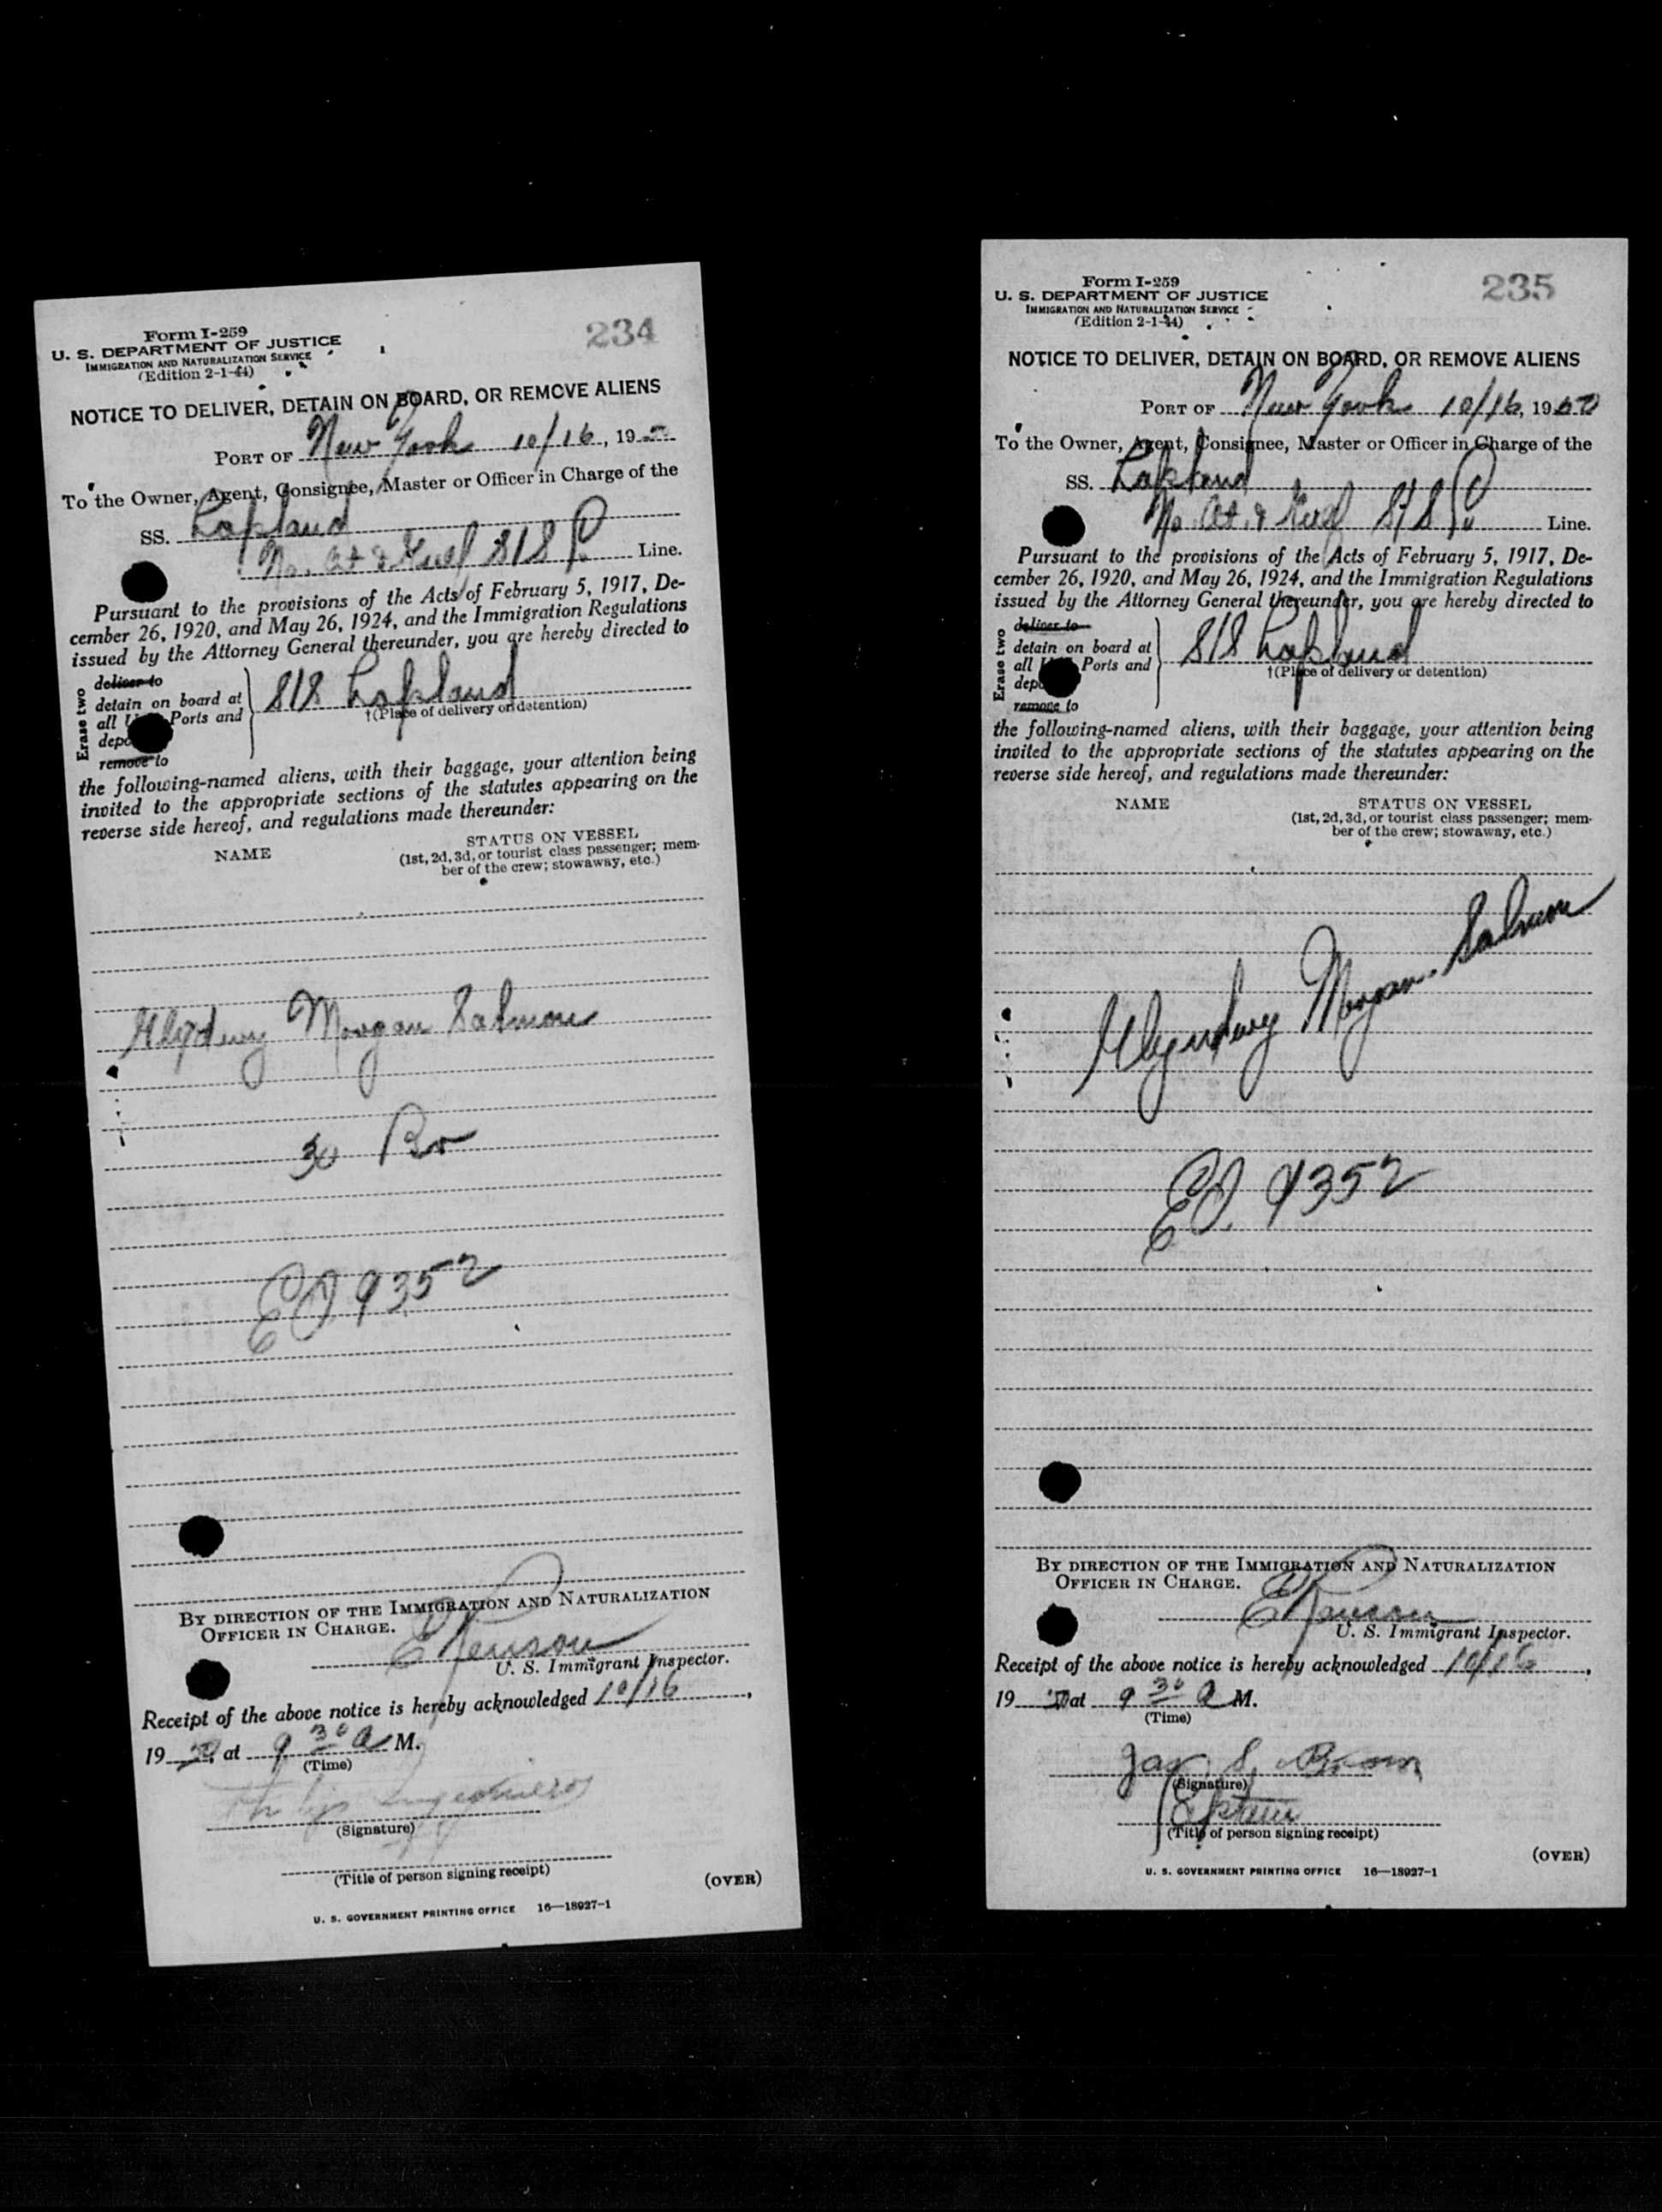 Form I-259
U. S. DEPARTMENT OF JUSTICE
IMMIGRATION AND NATURALIZATION SERVICE
(Edition 2-1-44)
234
NOTICE TO DELIVER, DETAIN ON BOARD, OR REMOVE ALIENS
PORT OF New York 10/16, 19
To the Owner, Agent, Consignee, Master or Officer in Charge of the
SS. Lapland
No. At & Gulf S/S Line.
Pursuant to the provisions of the Acts of February 5, 1917, De-
cember 26, 1920, and May 26, 1924, and the Immigration Regulations
issued by the Attorney General thereunder, you are hereby directed to
Erase two
deliver to
detain on board at
all Ports and
remove to
S/S Lapland
†(Place of delivery or detention)
the following-named aliens, with their baggage, your attention being
invited to the appropriate sections of the statutes appearing on the
reverse side hereof, and regulations made thereunder:
NAME
STATUS ON VESSEL
(1st, 2d, 3d, or tourist class passenger; mem-
ber of the crew; stowaway, etc.)
Morgan Salmon
30 Br
EO 9352
BY DIRECTION OF THE IMMIGRATION AND NATURALIZATION
OFFICER IN CHARGE.
U. S. Immigrant Inspector.
Receipt of the above notice is hereby acknowledged 10/16,
19 50, at 9 30 A M.
(Time)
(Signature)
(Title of person signing receipt)
(OVER)
U. S. GOVERNMENT PRINTING OFFICE 16—18927-1
Form I-259
U. S. DEPARTMENT OF JUSTICE
IMMIGRATION AND NATURALIZATION SERVICE
(Edition 2-1-44)
235
NOTICE TO DELIVER, DETAIN ON BOARD, OR REMOVE ALIENS
PORT OF New York 10/16, 1950
To the Owner, Agent, Consignee, Master or Officer in Charge of the
SS. Lapland
No. At. & Gulf S/S Line.
Pursuant to the provisions of the Acts of February 5, 1917, De-
cember 26, 1920, and May 26, 1924, and the Immigration Regulations
issued by the Attorney General thereunder, you are hereby directed to
Erase two
deliver to
detain on board at
all Ports and
remove to
S/S Lapland
†(Place of delivery or detention)
the following-named aliens, with their baggage, your attention being
invited to the appropriate sections of the statutes appearing on the
reverse side hereof, and regulations made thereunder:
NAME
STATUS ON VESSEL
(1st, 2d, 3d, or tourist class passenger; mem-
ber of the crew; stowaway, etc.)
Morgan Salmon
EO 9352
BY DIRECTION OF THE IMMIGRATION AND NATURALIZATION
OFFICER IN CHARGE.
U. S. Immigrant Inspector.
Receipt of the above notice is hereby acknowledged 10/16,
19 50 at 9 30 A M.
(Time)
S. Brown
(Signature)
(Title of person signing receipt)
(OVER)
U. S. GOVERNMENT PRINTING OFFICE 16—18927-1